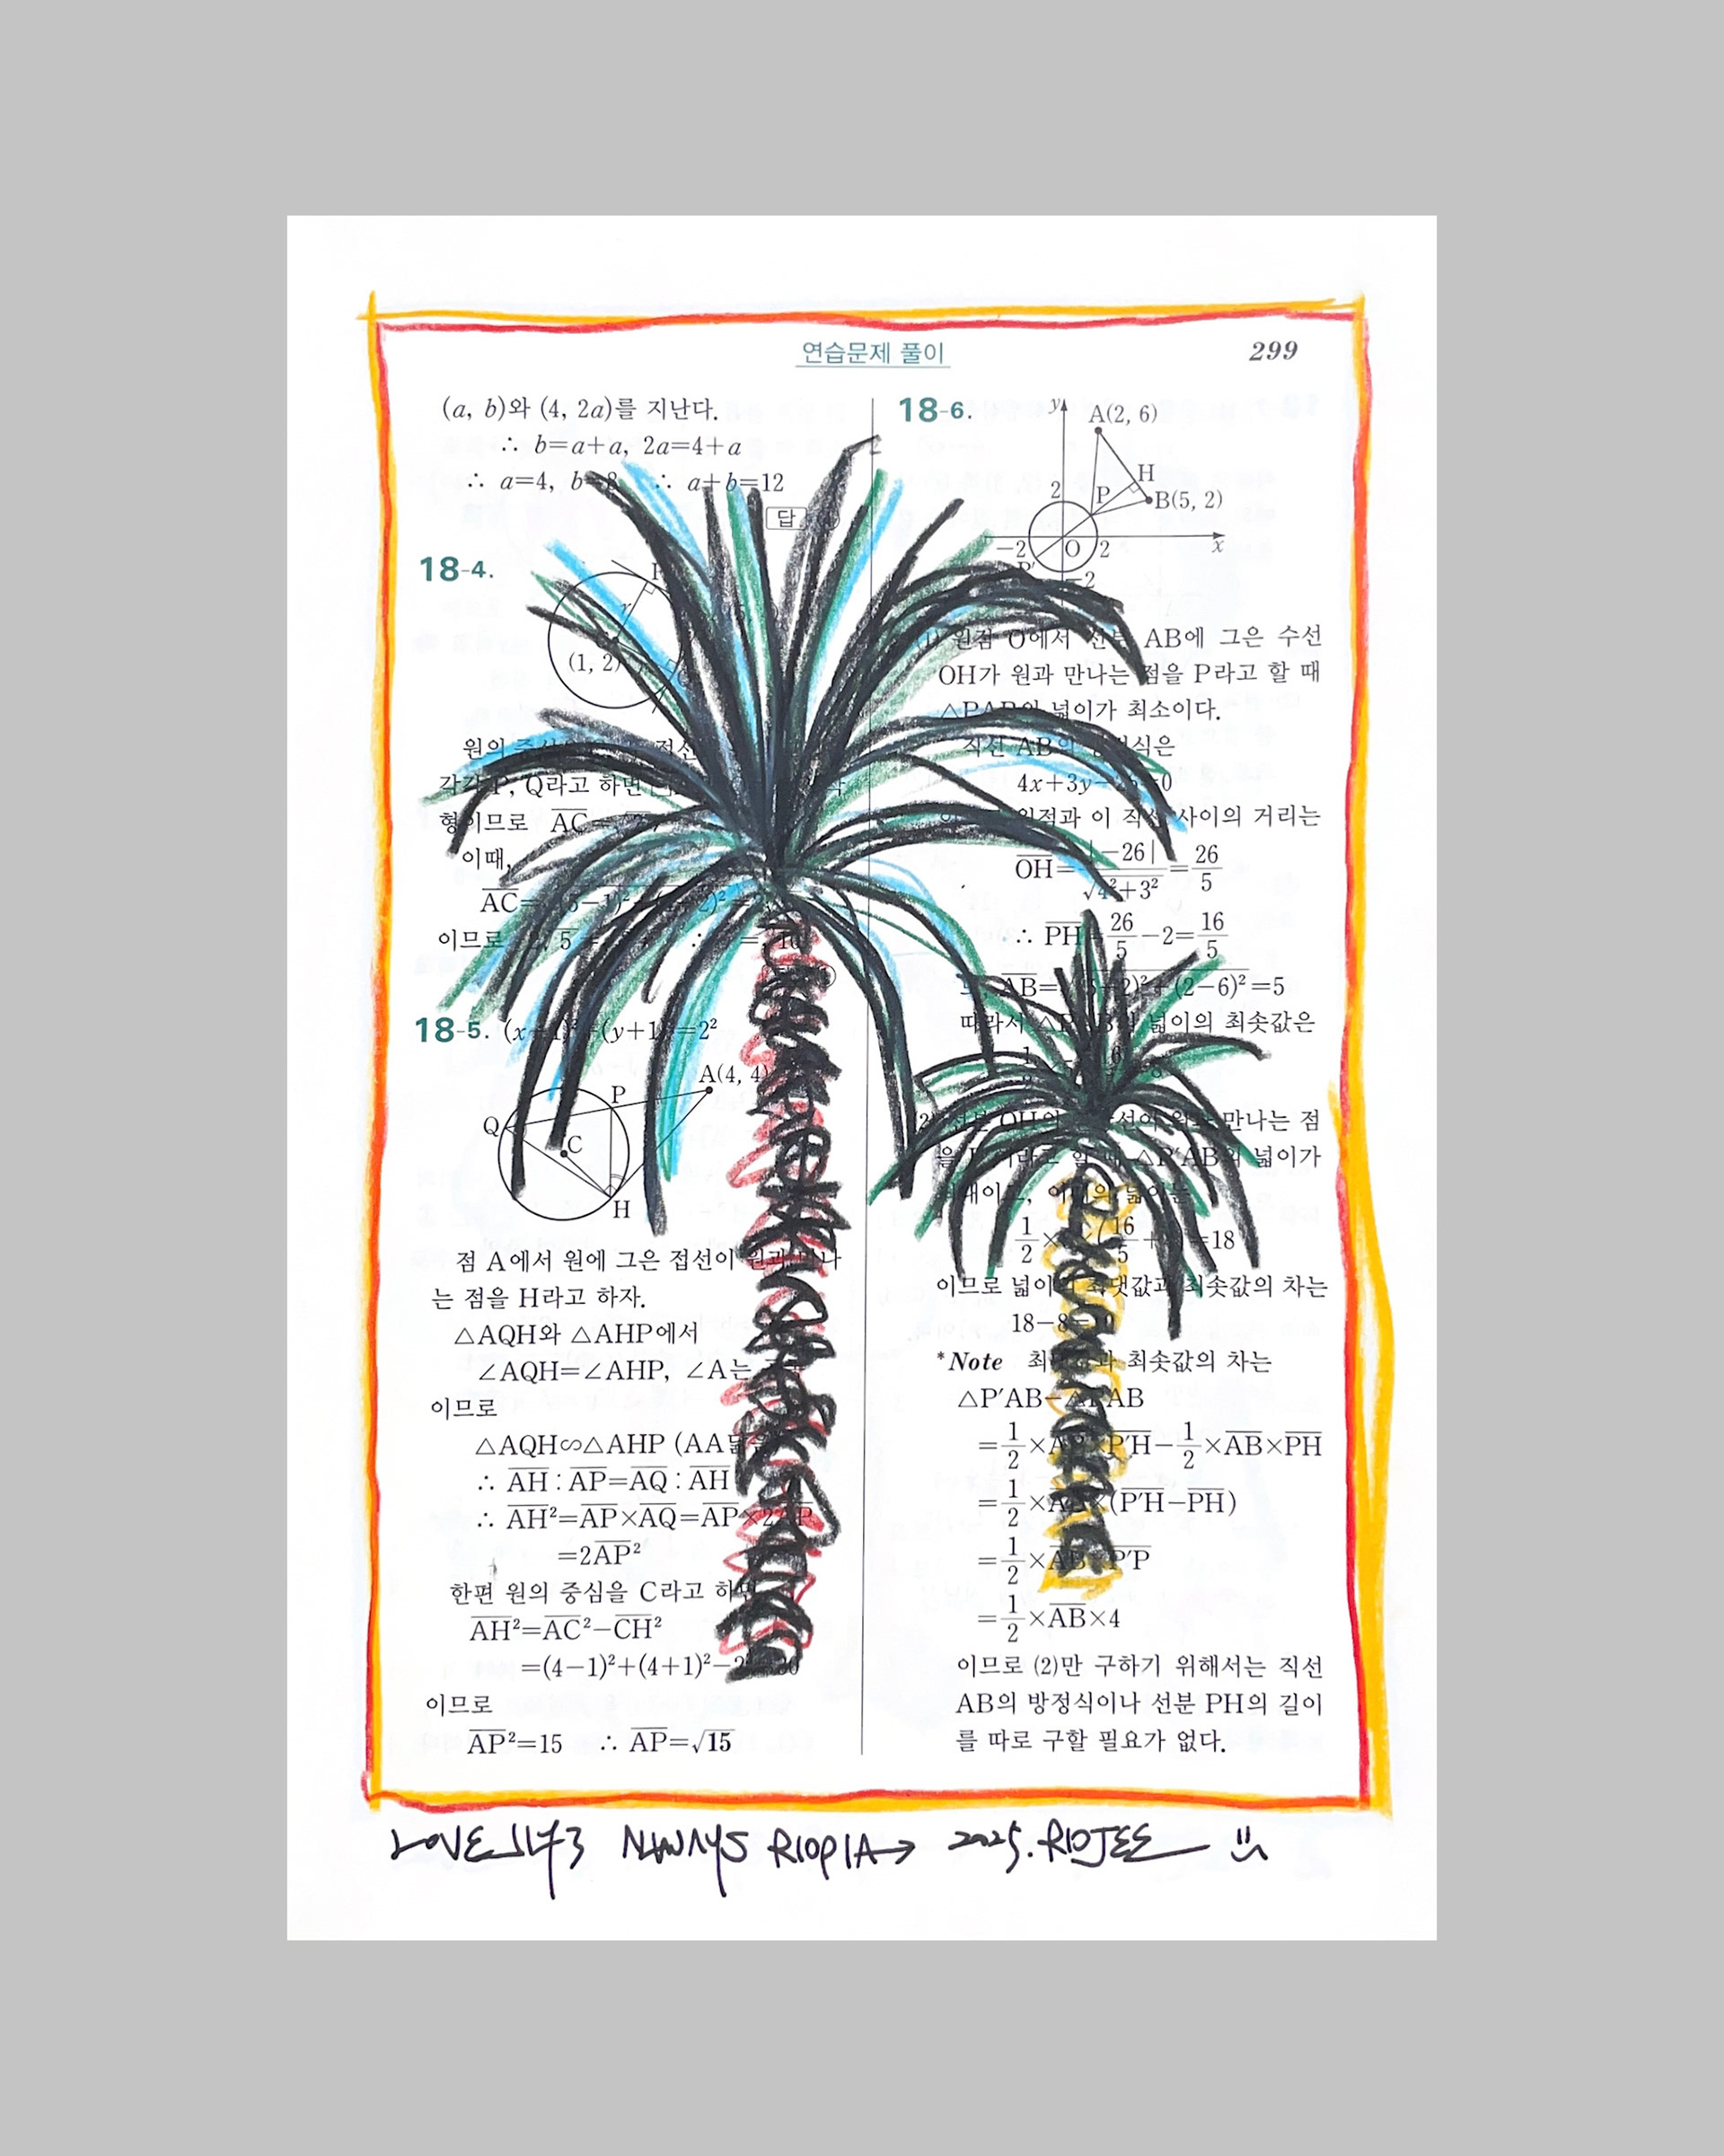 연습문제 풀이
299
(a, b)와 (4, 2a)를 지난다.
∴ b=a+a, 2a=4+a
∴ a=4, b=8 ∴ a+b=12
답
18-4.
r
(1, 2)
원의 중심
각각 P, Q라고 하면
형이므로 AC=
이때,
AC=
이므로
18-5. (x+1)²+(y+1)²=2²
A(4, 4)
P
Q
C
H
점 A에서 원에 그은 접선이 원과 만나
는 점을 H라고 하자.
△AQH와 △AHP에서
∠AQH=∠AHP, ∠A는
이므로
△AQH∽△AHP (AA닮음)
∴ AH : AP=AQ : AH
∴ AH²=AP×AQ=AP×2AP
=2AP²
한편 원의 중심을 C라고 하면
AH²=AC²-CH²
=(4-1)²+(4+1)²-2²=30
이므로
AP²=15 ∴ AP=√15
18-6.
y
A(2, 6)
H
2
P
B(5, 2)
-2
O
2
x
P′
-2
(1) 원점 O에서 선분 AB에 그은 수선
OH가 원과 만나는 점을 P라고 할 때
△PAB의 넓이가 최소이다.
직선 AB의 방정식은
4x+3y-26=0
원점과 이 직선 사이의 거리는
OH=|-26|/√4²+3²=26/5
∴ PH=26/5-2=16/5
또, AB=√(5-2)²+(2-6)²=5
따라서 △PAB의 넓이의 최솟값은
(2) 선분 OH의 연장선이 원과 만나는 점
을 P′이라고 할 때 △P′AB의 넓이가
최대이고, 이때의 넓이는
1/2×5×(16/5+4)=18
이므로 넓이의 최댓값과 최솟값의 차는
18-8=10
*Note 최댓값과 최솟값의 차는
△P′AB-△PAB
=1/2×AB×P′H-1/2×AB×PH
=1/2×AB×(P′H-PH)
=1/2×AB×P′P
=1/2×AB×4
이므로 (2)만 구하기 위해서는 직선
AB의 방정식이나 선분 PH의 길이
를 따로 구할 필요가 없다.
LOVE ALWAYS RIOPIA→ 2025. RIOJEE